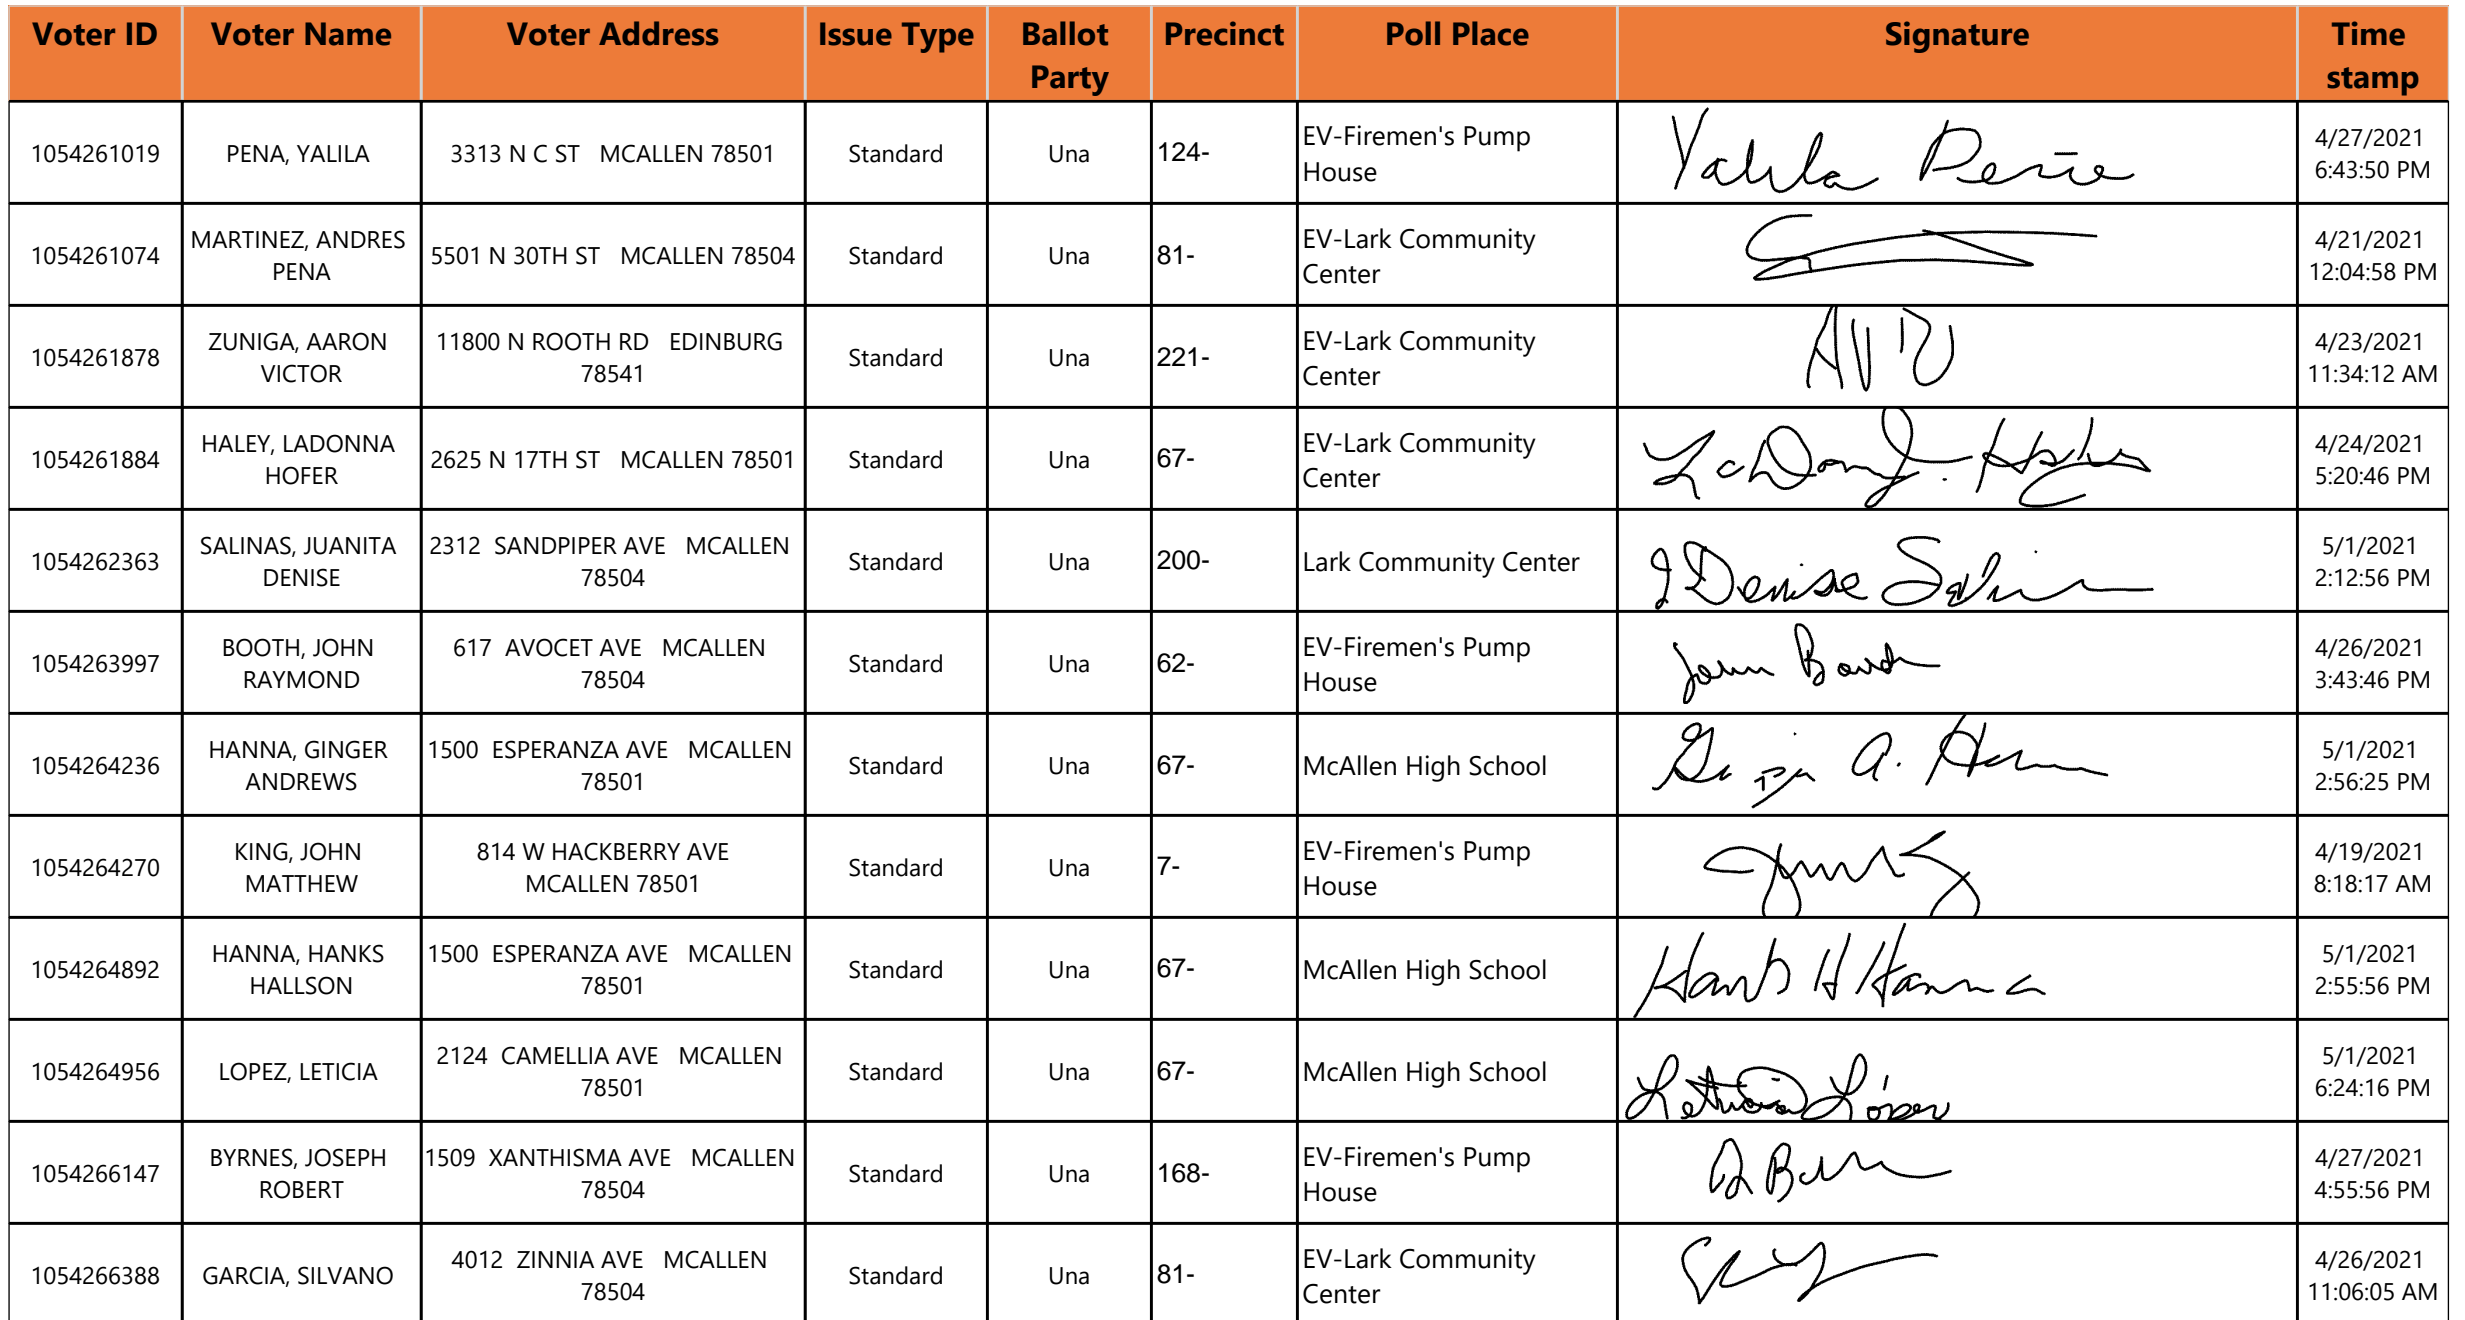 Voter ID Voter Name Voter Address Issue Type Ballot Party Precinct Poll Place Signature Time stamp
1054261019 PENA, YALILA 3313 N C ST MCALLEN 78501 Standard Una 124- EV-Firemen's Pump House Yalila Peña 4/27/2021 6:43:50 PM
1054261074 MARTINEZ, ANDRES PENA 5501 N 30TH ST MCALLEN 78504 Standard Una 81- EV-Lark Community Center 4/21/2021 12:04:58 PM
1054261878 ZUNIGA, AARON VICTOR 11800 N ROOTH RD EDINBURG 78541 Standard Una 221- EV-Lark Community Center 4/23/2021 11:34:12 AM
1054261884 HALEY, LADONNA HOFER 2625 N 17TH ST MCALLEN 78501 Standard Una 67- EV-Lark Community Center 4/24/2021 5:20:46 PM
1054262363 SALINAS, JUANITA DENISE 2312 SANDPIPER AVE MCALLEN 78504 Standard Una 200- Lark Community Center J Denise Salin 5/1/2021 2:12:56 PM
1054263997 BOOTH, JOHN RAYMOND 617 AVOCET AVE MCALLEN 78504 Standard Una 62- EV-Firemen's Pump House John Booth 4/26/2021 3:43:46 PM
1054264236 HANNA, GINGER ANDREWS 1500 ESPERANZA AVE MCALLEN 78501 Standard Una 67- McAllen High School Ginger A. Hanna 5/1/2021 2:56:25 PM
1054264270 KING, JOHN MATTHEW 814 W HACKBERRY AVE MCALLEN 78501 Standard Una 7- EV-Firemen's Pump House 4/19/2021 8:18:17 AM
1054264892 HANNA, HANKS HALLSON 1500 ESPERANZA AVE MCALLEN 78501 Standard Una 67- McAllen High School Hanks H Hanna 5/1/2021 2:55:56 PM
1054264956 LOPEZ, LETICIA 2124 CAMELLIA AVE MCALLEN 78501 Standard Una 67- McAllen High School Leticia López 5/1/2021 6:24:16 PM
1054266147 BYRNES, JOSEPH ROBERT 1509 XANTHISMA AVE MCALLEN 78504 Standard Una 168- EV-Firemen's Pump House 4/27/2021 4:55:56 PM
1054266388 GARCIA, SILVANO 4012 ZINNIA AVE MCALLEN 78504 Standard Una 81- EV-Lark Community Center 4/26/2021 11:06:05 AM